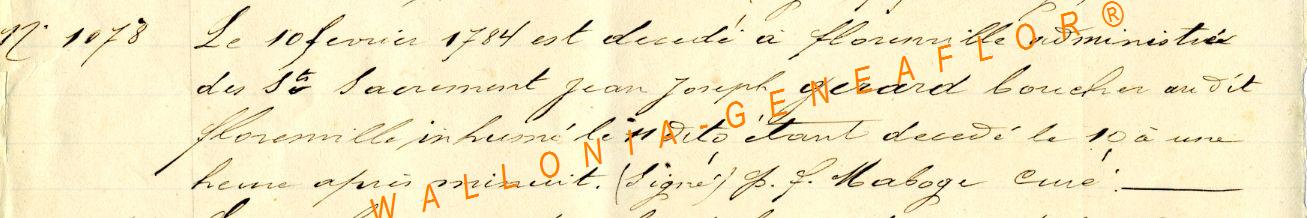 N° 1078 Le 10 fevrier 1784 est decedé à florenville administré
des Sts Sacrement jean joseph gerard boucher audit
florenville inhumé le 11 dito étant decedé le 10 à une
heure après minuit. (signé) J. f. Maboge curé.
WALLONIA-GENEAFLOR®